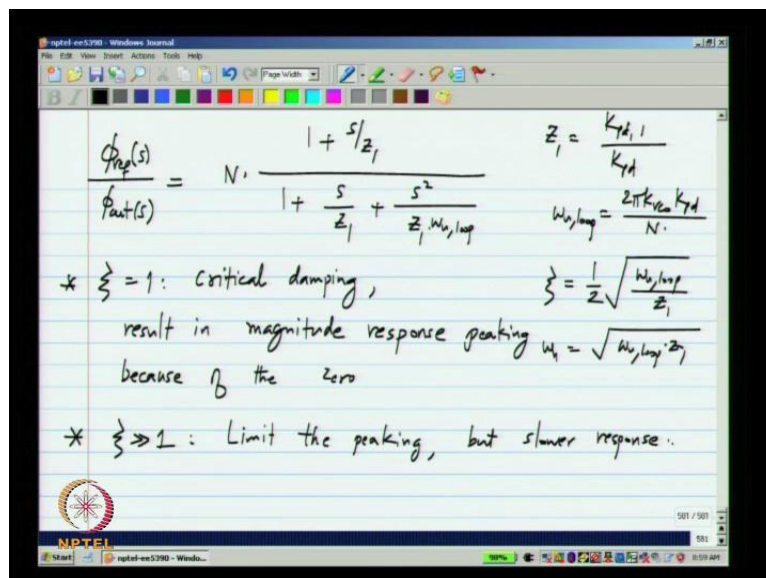 nptel-ee5390 - Windows Journal
File Edit View Insert Actions Tools Help
Page Width
B I
ϕref(s) / ϕout(s) = N · (1 + s/z₁) / (1 + s/z₁ + s²/(z₁·ωu,loop))
z₁ = Kpd,1 / Kpd
ωu,loop = 2πKvco Kpd / N·
* ξ = 1: Critical damping,
ξ = 1/2 √(ωu,loop / z₁)
result in magnitude response peaking
ωn = √(ωu,loop · z₁)
because of the zero
* ξ ≫ 1 : Limit the peaking, but slower response.
501 / 501
501
NPTEL
Start
nptel-ee5390 - Windo...
98%
8:59 AM